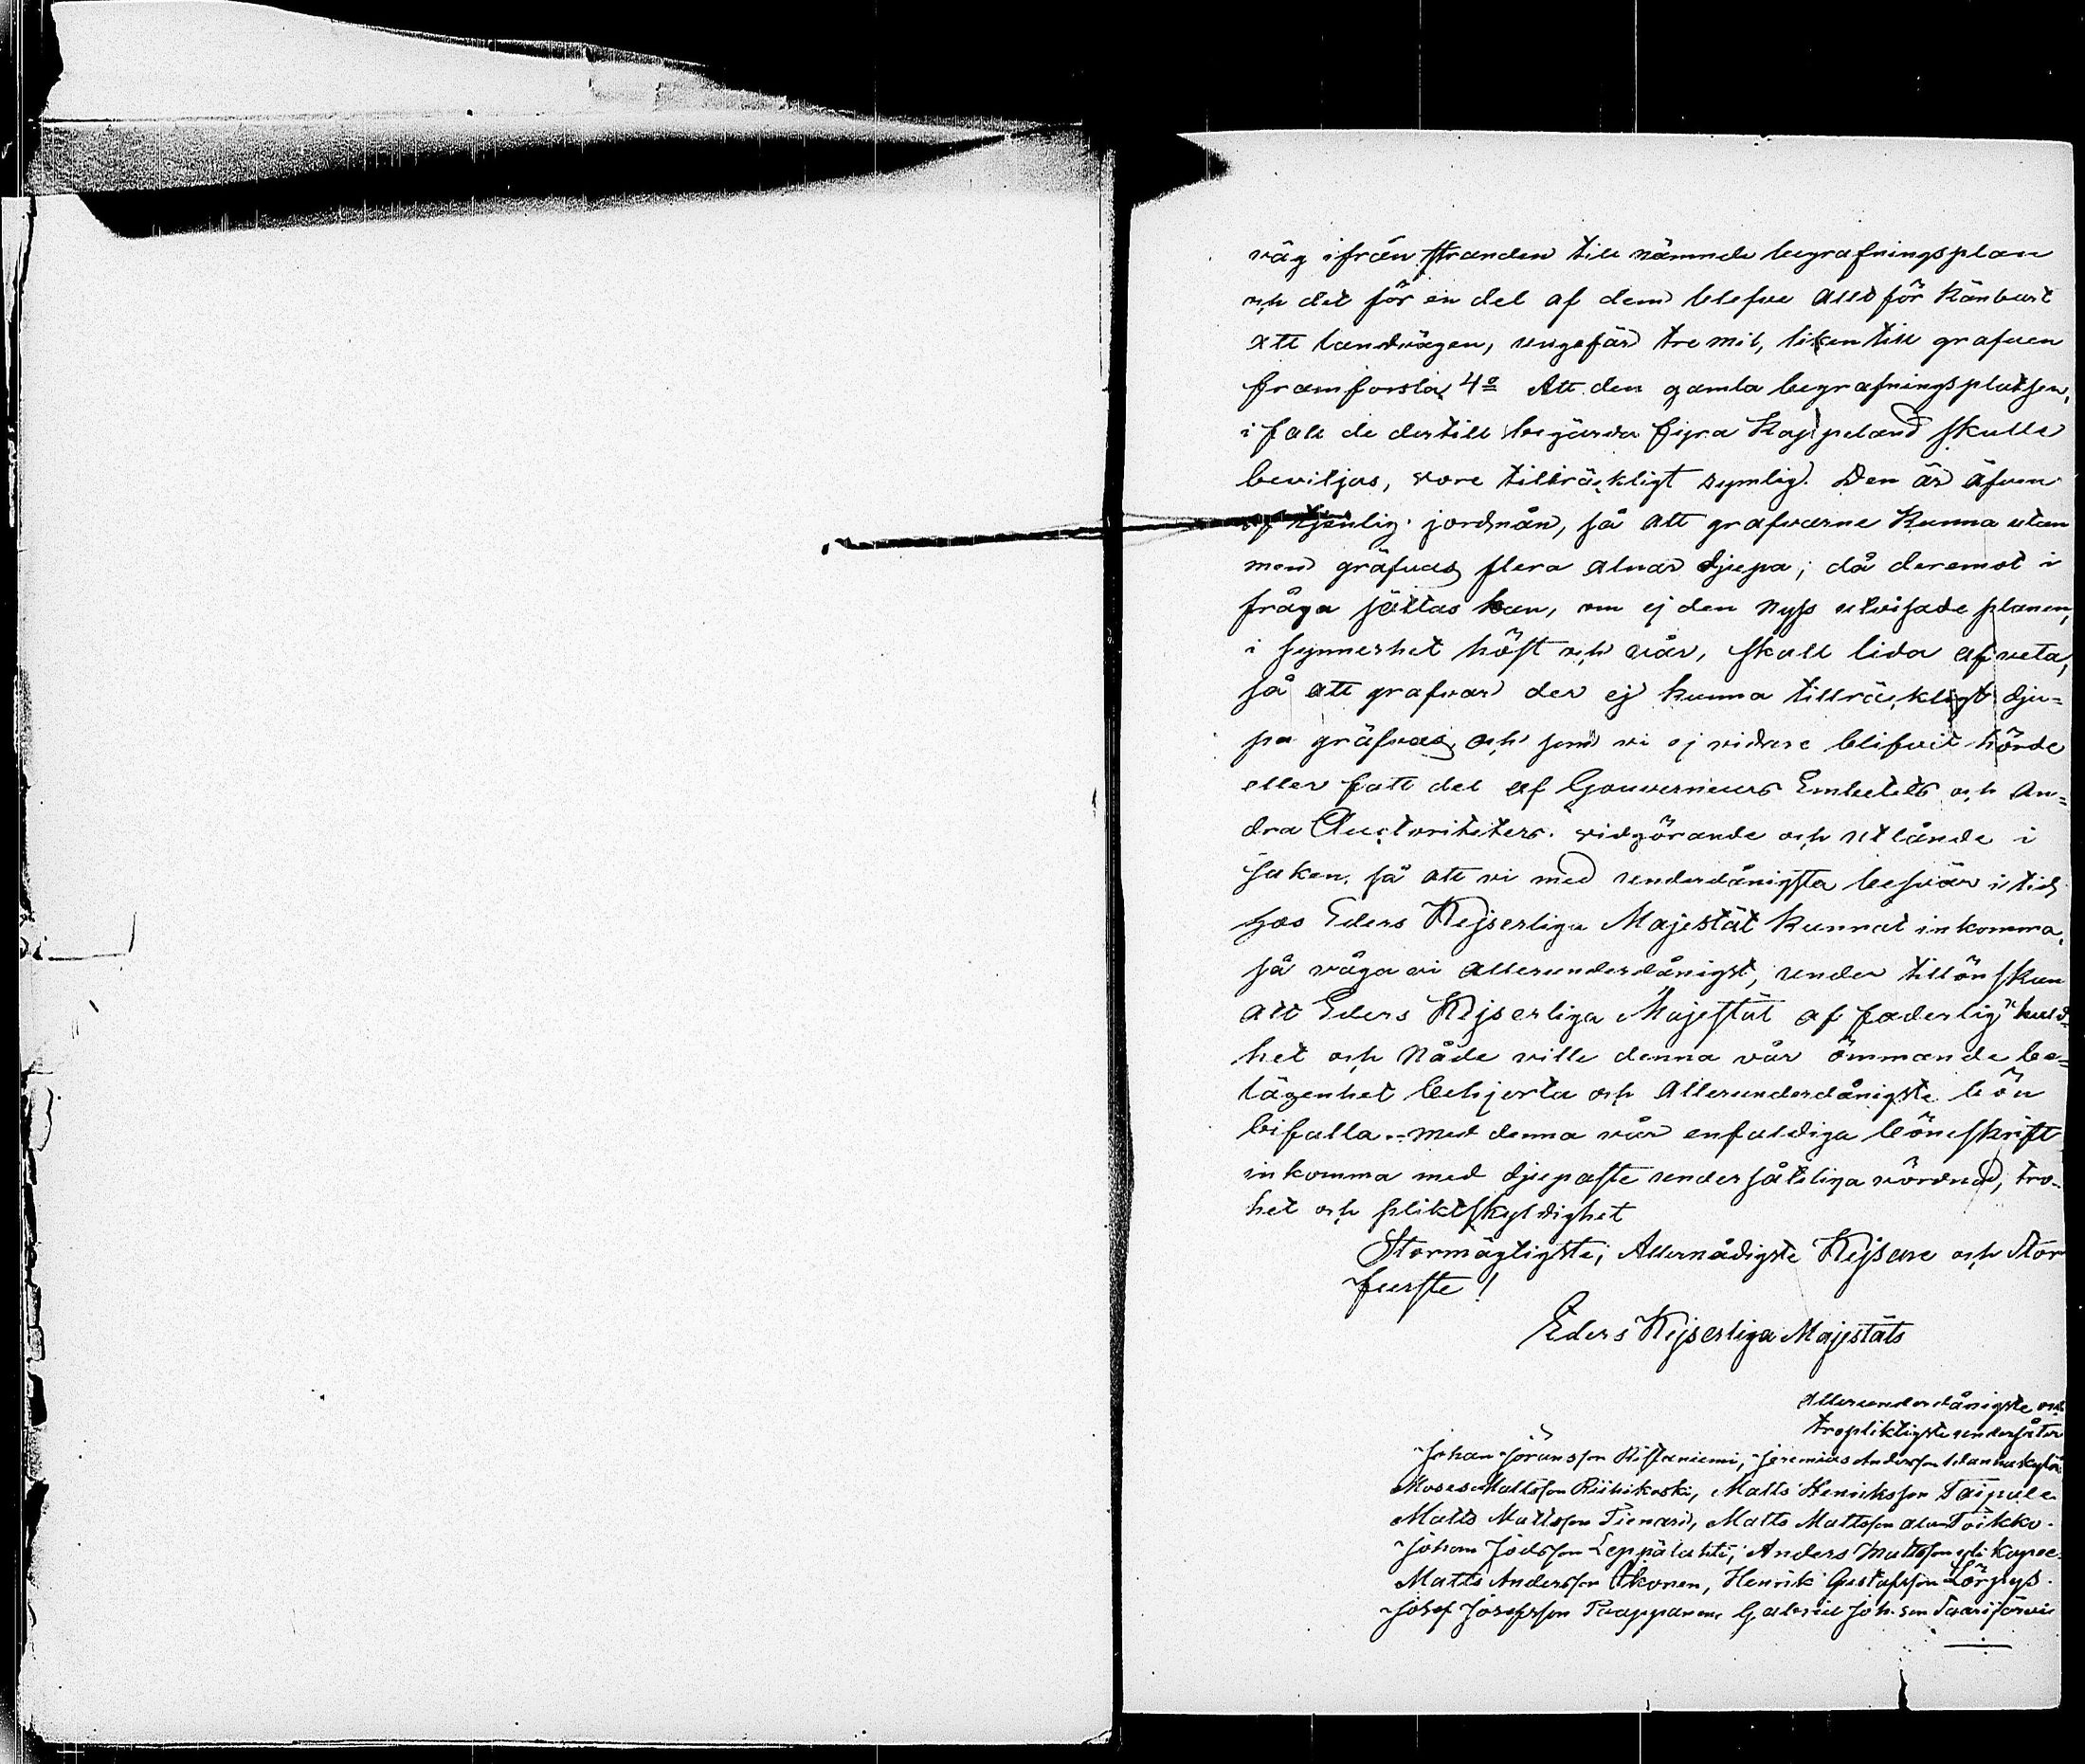 väg ifrån stranden till nämnde begrafningsplan
och det för en del af dem blefve alldför kånbart
att landvägen, ungefär tre mil, liken till grafven
framforsla, 4º Att den gamla begrafningsplatsen,
i fall de dertill begärda fyra Kappeland skulle
beviljas, vore tillräckligt rymlig. Den är äfven
af tjenlig jordmån, så att grafvarne kunna utan
men gräfvas flera alnar djupa; då deremot i
fråga sättas kan, om ej den nyss utvisade planen,
i synnerhet höst och vår, skall lida af veta,
så att grafvar der ej kunna tillräckligt dju=
pa gräfvas, och som vi ej vidare blifvit hörde
eller fått del af Gouverneurs Embetets och An=
dra Auctoriteters vidgörande och utlånde i
saken, så att vi med underdånigsta besvär i tid
hos Eders Kejserliga Majestät kunnat inkomma,
så våga vi allerunderdånigst, under tillönskan
att Eders Kejserliga Majestät af faderlig huld=
het och Nåde ville denna vår ömmande be=
lägenhet behjerta och allerunderdånigste bön
bifalla med denna vår enfaldiga böneskrift
inkomma med djupaste undersåteliga vördnad, tro=
het och pliktskyldighet
Stormägtigste, Allernådigste Kejsare och Stor
furste!
Eders Kejserliga Majestäts
Allerunderdånigste och
tropliktigste undersåter
Johan Jöransson Ristaniemi, Jeremias Andersson
Moses Mattsson Riihikoski, Matts Henriksson Taipale
Matts Mattsson Tienari, Matts Mattsson Toikko.
Johan Leppälahti, Anders Mattsson
Matts Andersson Ikonen, Henrik Gustafsson
Josef Josefsson Paappanen, Gabriel Joh:son Saarijärvi